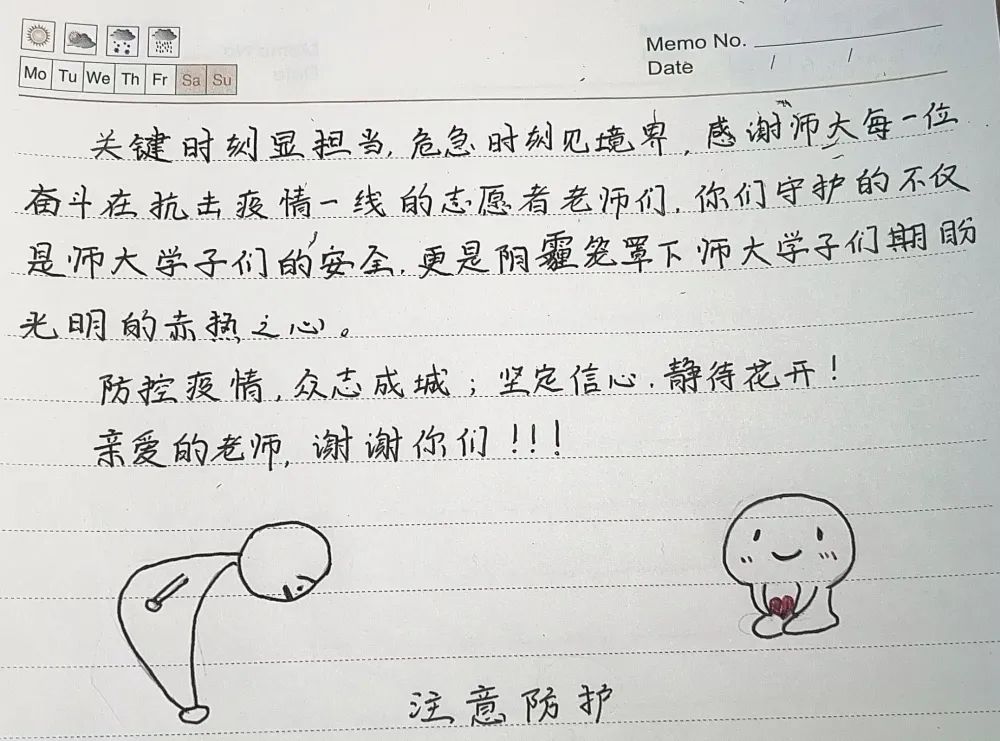 Memo No.
Date / /
Mo Tu We Th Fr Sa Su
关键时刻显担当,危急时刻见境界,感谢师大每一位
奋斗在抗击疫情一线的志愿者老师们,你们守护的不仅
是师大学子们的安全,更是阴霾笼罩下师大学子们期盼
光明的赤热之心。
防控疫情,众志成城;坚定信心,静待花开!
亲爱的老师,谢谢你们!!!
注意防护